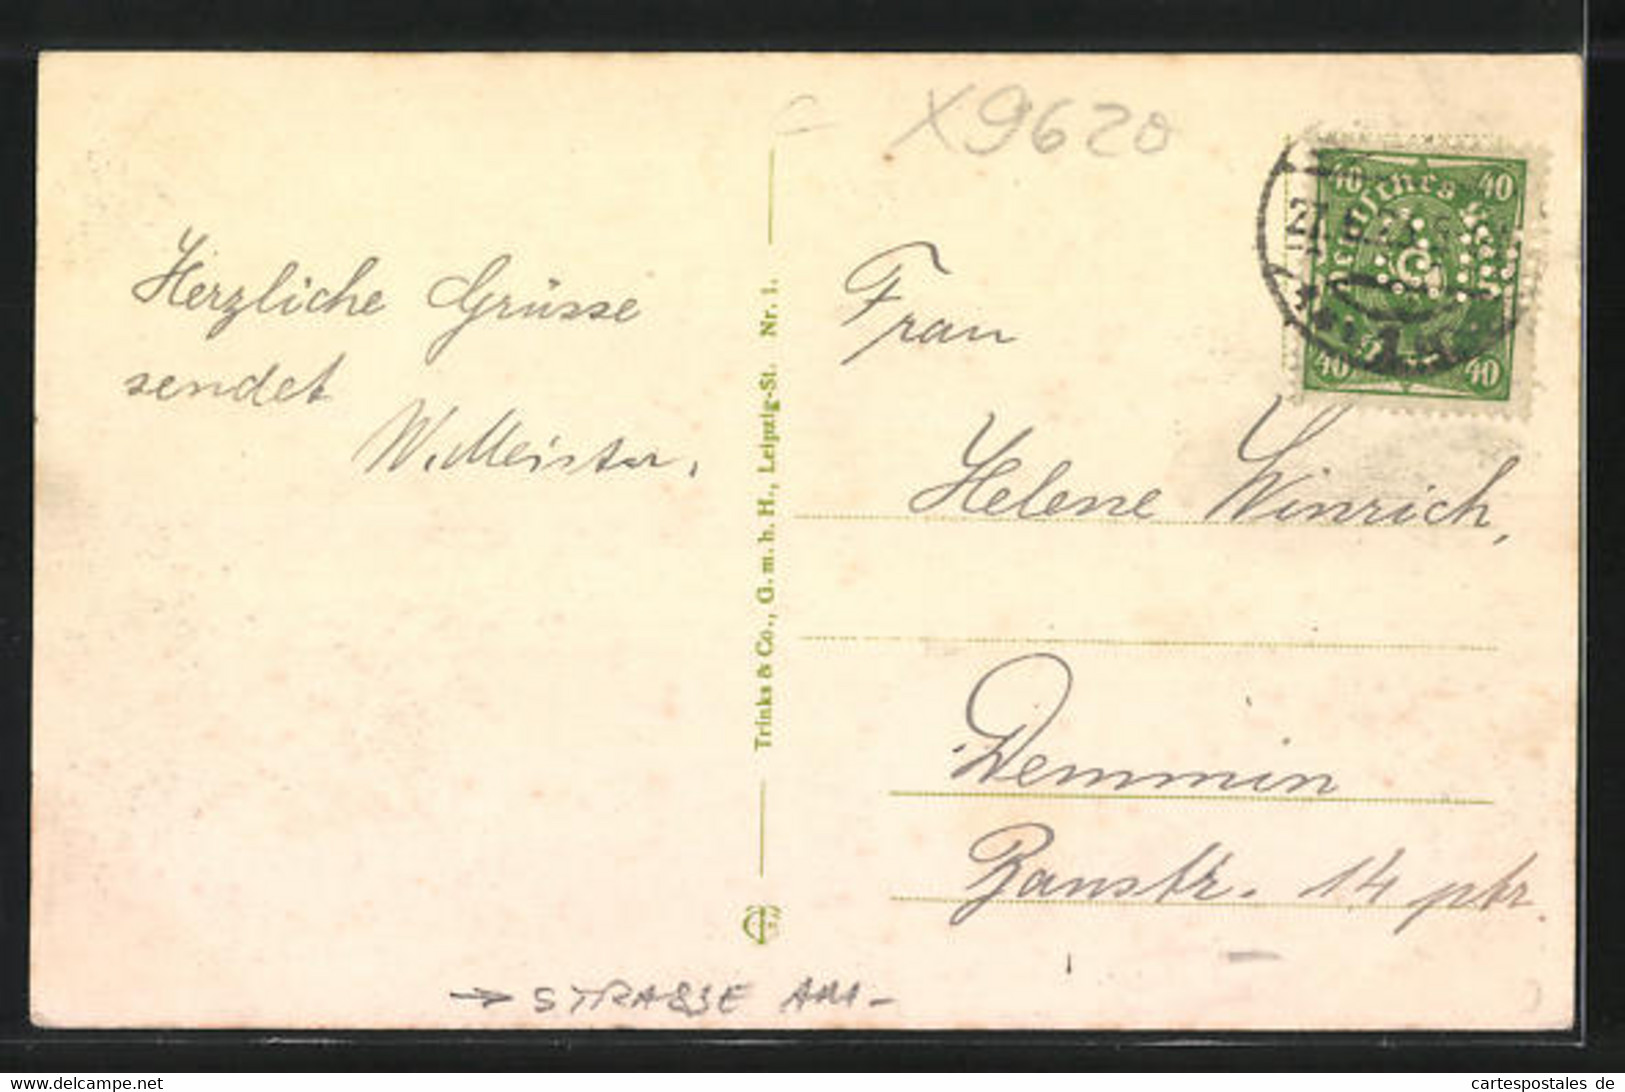 X9620
Herzliche Grüsse
sendet
W. Meister.
Trinks & Co., G. m. b. H., Leipzig-St. Nr. 1.
40 Deutsches 40
40 40
1
Frau
Helene Winrich,
Demmin
Baustr. 14 ptr.
→ STRASSE AM-
www.delcampe.net
cartespostales de